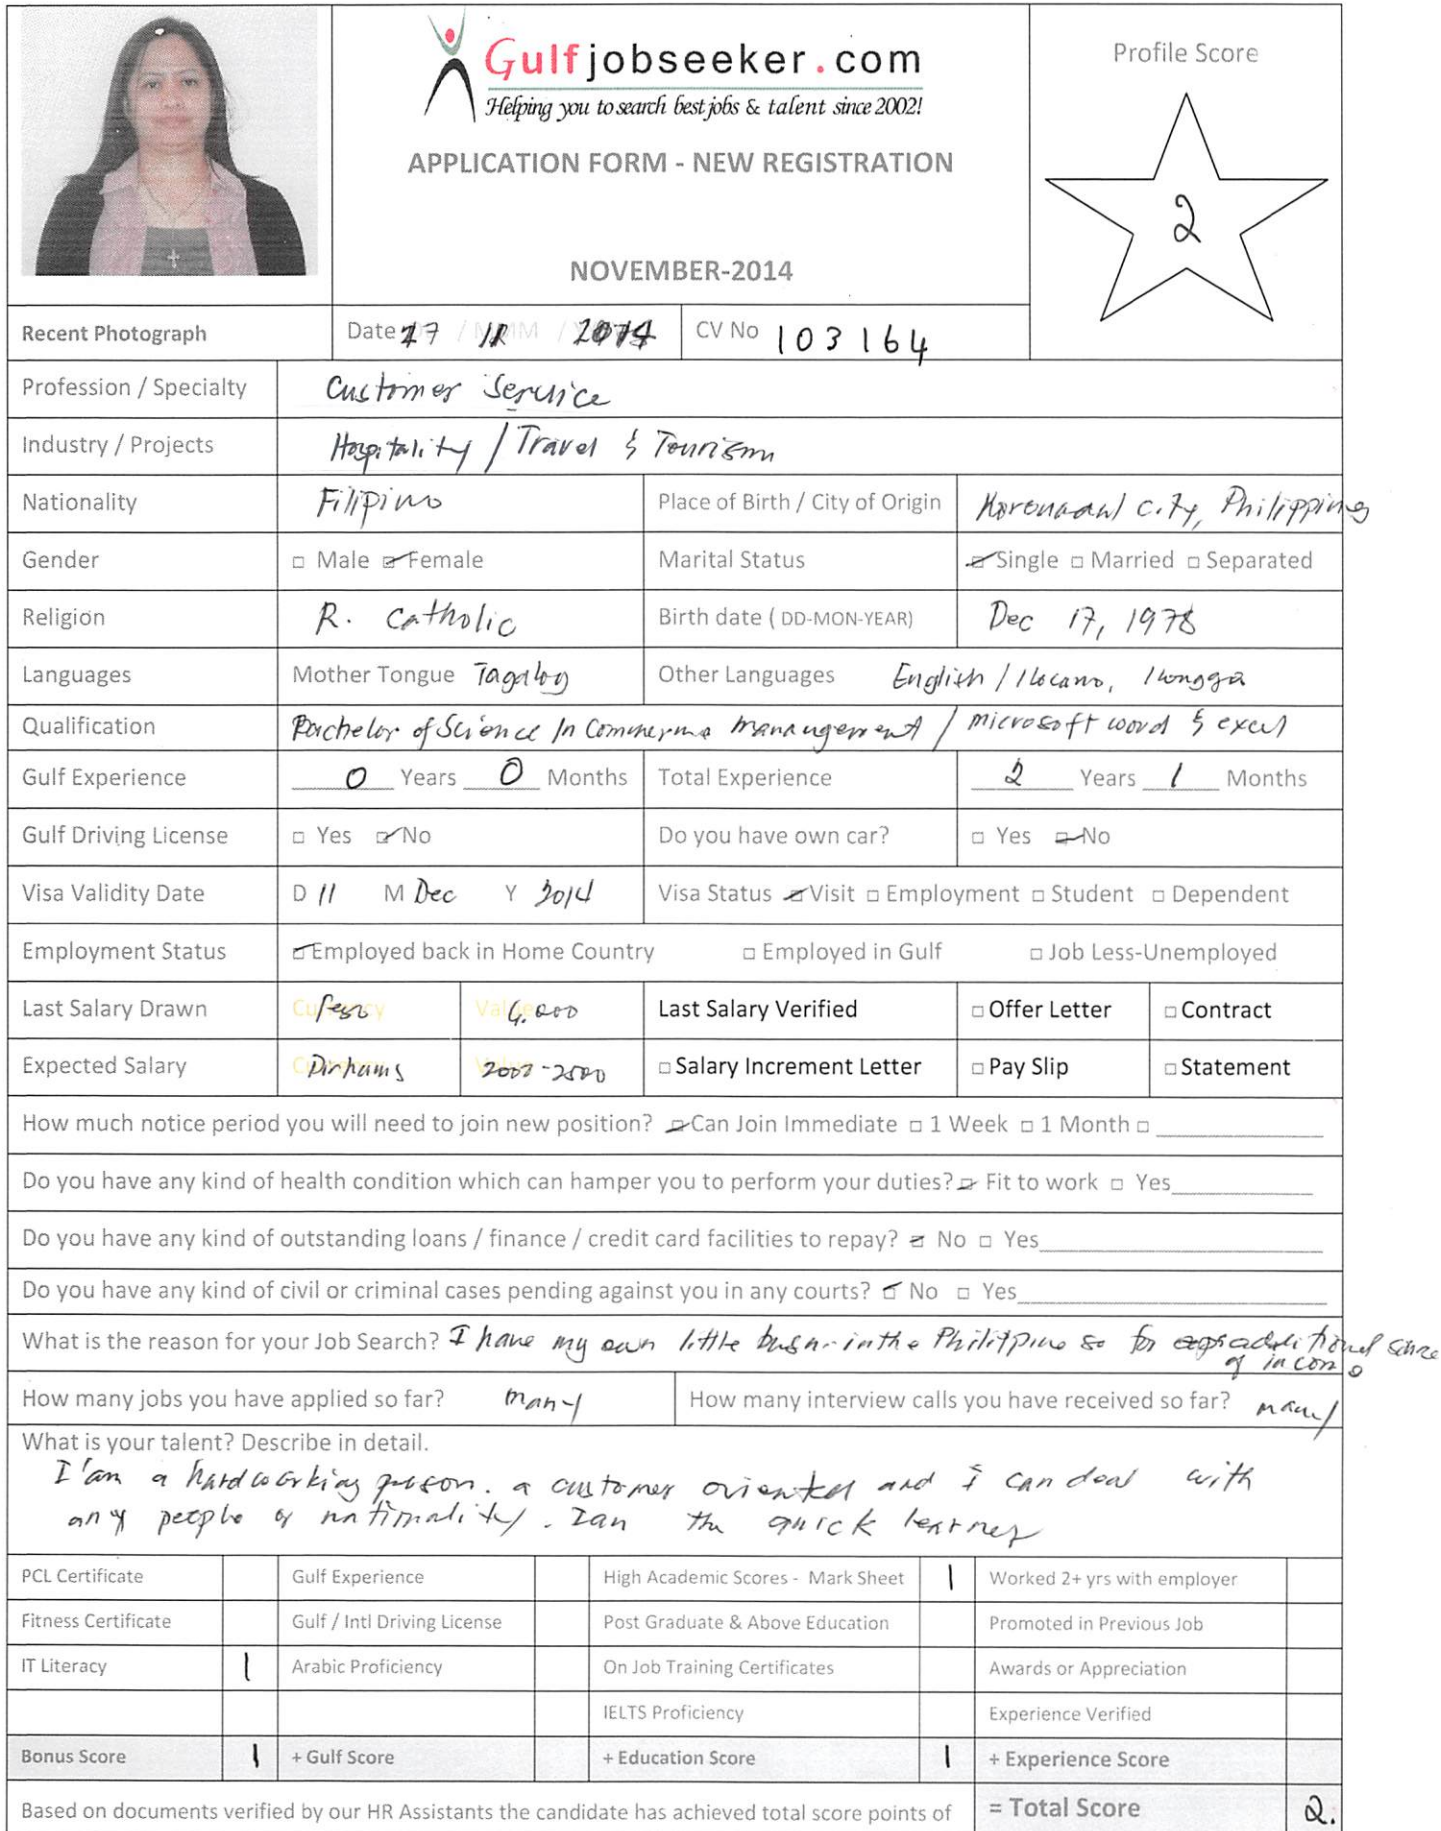 Gulfjobseeker.com
Helping you to search best jobs & talent since 2002!
APPLICATION FORM - NEW REGISTRATION
NOVEMBER-2014
Profile Score
2
Recent Photograph Date 17 11 2014 CV No 103164
Profession / Specialty Customer Service
Industry / Projects Hospitality / Travel & Tourism
Nationality Filipino Place of Birth / City of Origin Koronadal City, Philippines
Gender □ Male ☑ Female Marital Status ☑ Single □ Married □ Separated
Religion R. Catholic Birth date ( DD-MON-YEAR) Dec 17, 1978
Languages Mother Tongue Tagalog Other Languages English / Ilocano, Ilongga
Qualification Bachelor of Science In Management / microsoft word & excel
Gulf Experience 0 Years 0 Months Total Experience 2 Years 1 Months
Gulf Driving License □ Yes ☑ No Do you have own car? □ Yes ☑ No
Visa Validity Date D 11 M Dec Y 2014 Visa Status ☑ Visit □ Employment □ Student □ Dependent
Employment Status ☑ Employed back in Home Country □ Employed in Gulf □ Job Less-Unemployed
Last Salary Drawn Currency Peso Value 000 Last Salary Verified □ Offer Letter □ Contract
Expected Salary Currency Dirhams Value 2000-2500 □ Salary Increment Letter □ Pay Slip □ Statement
How much notice period you will need to join new position? ☑ Can Join Immediate □ 1 Week □ 1 Month □
Do you have any kind of health condition which can hamper you to perform your duties? ☑ Fit to work □ Yes
Do you have any kind of outstanding loans / finance / credit card facilities to repay? ☑ No □ Yes
Do you have any kind of civil or criminal cases pending against you in any courts? ☑ No □ Yes
What is the reason for your Job Search? I have my own little in the Philippine so for additional
of income
How many jobs you have applied so far? many How many interview calls you have received so far? many
What is your talent? Describe in detail.
I'am a hardworking person. a customer oriented and i can deal with
any people of nationality. Iam the quick learner
PCL Certificate Gulf Experience High Academic Scores - Mark Sheet 1 Worked 2+ yrs with employer
Fitness Certificate Gulf / Intl Driving License Post Graduate & Above Education Promoted in Previous Job
IT Literacy 1 Arabic Proficiency On Job Training Certificates Awards or Appreciation
IELTS Proficiency Experience Verified
Bonus Score 1 + Gulf Score + Education Score 1 + Experience Score
Based on documents verified by our HR Assistants the candidate has achieved total score points of = Total Score 2.